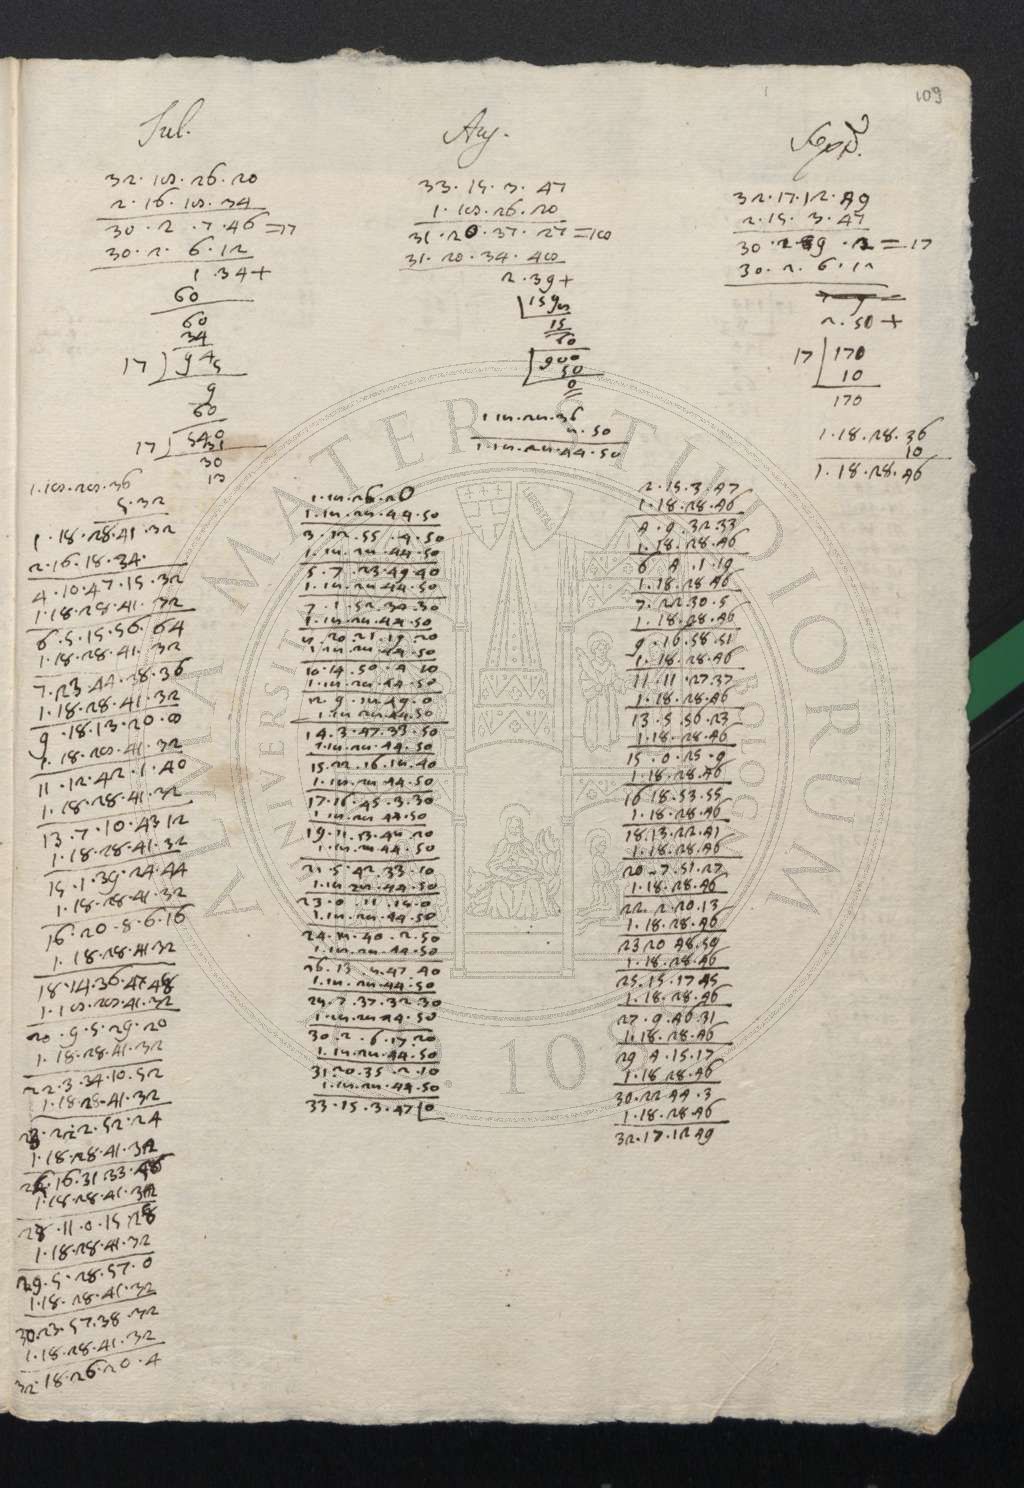 109
Jul.
32.18.26.20
2.16.18.34
30.2.7.46=17
30.2.6.12
1.34+
60
60
34
17)94 5
9
60
17)540
31
30
13
1.18.28.36
5.32
1.18.28.41.32
2.16.18.34.
4.10.47.15.32
1.18.28.41.32
6.5.15.56.64
1.18.28.41.32
7.23.44.38.36
1.18.28.41.32
9.18.13.20.8
1.18.28.41.32
11.12.42.1.40
1.18.28.41.32
13.7.10.43.12
1.18.28.41.32
15.1.39.24.44
1.18.28.41.32
16.20.8.6.16
1.18.28.41.32
18.14.36.47.48
1.18.28.41.32
20.9.5.29.20
1.18.28.41.32
22.3.34.10.52
1.18.28.41.32
23.22.2.52.24
1.18.28.41.32
26.16.31.33.48
1.18.28.41.32
28.11.0.15.28
1.18.28.41.32
29.5.28.57.0
1.18.28.41.32
30.23.57.38.32
1.18.28.41.32
32.18.26.20.4
Aug.
33.15.3.47
1.18.26.20
31.20.37.27=18
31.20.34.48
2.39+
159 8
15
60
900
50
0
1.18.28.36
8.50
1.18.28.44.50
1.18.26.20
1.18.28.44.50
3.12.55.4.50
1.18.28.44.50
5.7.23.49.40
1.18.28.44.50
7.1.52.34.30
1.18.28.44.50
8.20.21.19.20
1.18.28.44.50
10.14.50.4.10
1.18.28.44.50
12.9.18.49.0
1.18.28.44.50
14.3.47.33.50
1.18.28.44.50
15.22.16.18.40
1.18.28.44.50
17.16.45.3.30
1.18.28.44.50
19.11.13.48.20
1.18.28.44.50
21.5.42.33.10
1.18.28.44.50
23.0.11.18.0
1.18.28.44.50
24.18.40.2.50
1.18.28.44.50
26.13.8.47.40
1.18.28.44.50
28.7.37.32.30
1.18.28.44.50
30.2.6.17.20
1.18.28.44.50
31.20.35.2.10
1.18.28.44.50
33.15.3.47|0
Sept.
32.17.12.49
2.15.3.47
30.2.9.2=17
30.2.6.12
2.50+
17|170
10
170
1.18.28.36
10
1.18.28.46
2.15.3.47
1.18.28.46
4.9.32.33
1.18.28.46
6.4.1.19
1.18.28.46
7.22.30.5
1.18.28.46
9.16.58.51
1.18.28.46
11.11.27.37
1.18.28.46
13.5.56.23
1.18.28.46
15.0.25.9
1.18.28.46
16.18.53.55
1.18.28.46
18.13.22.41
1.18.28.46
20.7.51.27
1.18.28.46
22.2.20.13
1.18.28.46
23.20.48.59
1.18.28.46
25.15.17.45
1.18.28.46
27.9.46.31
1.18.28.46
29.4.15.17
1.18.28.46
30.22.44.3
1.18.28.46
32.17.12.49
ALMA MATER STUDIORUM
UNIVERSITÀ DI BOLOGNA
A.D. 1088